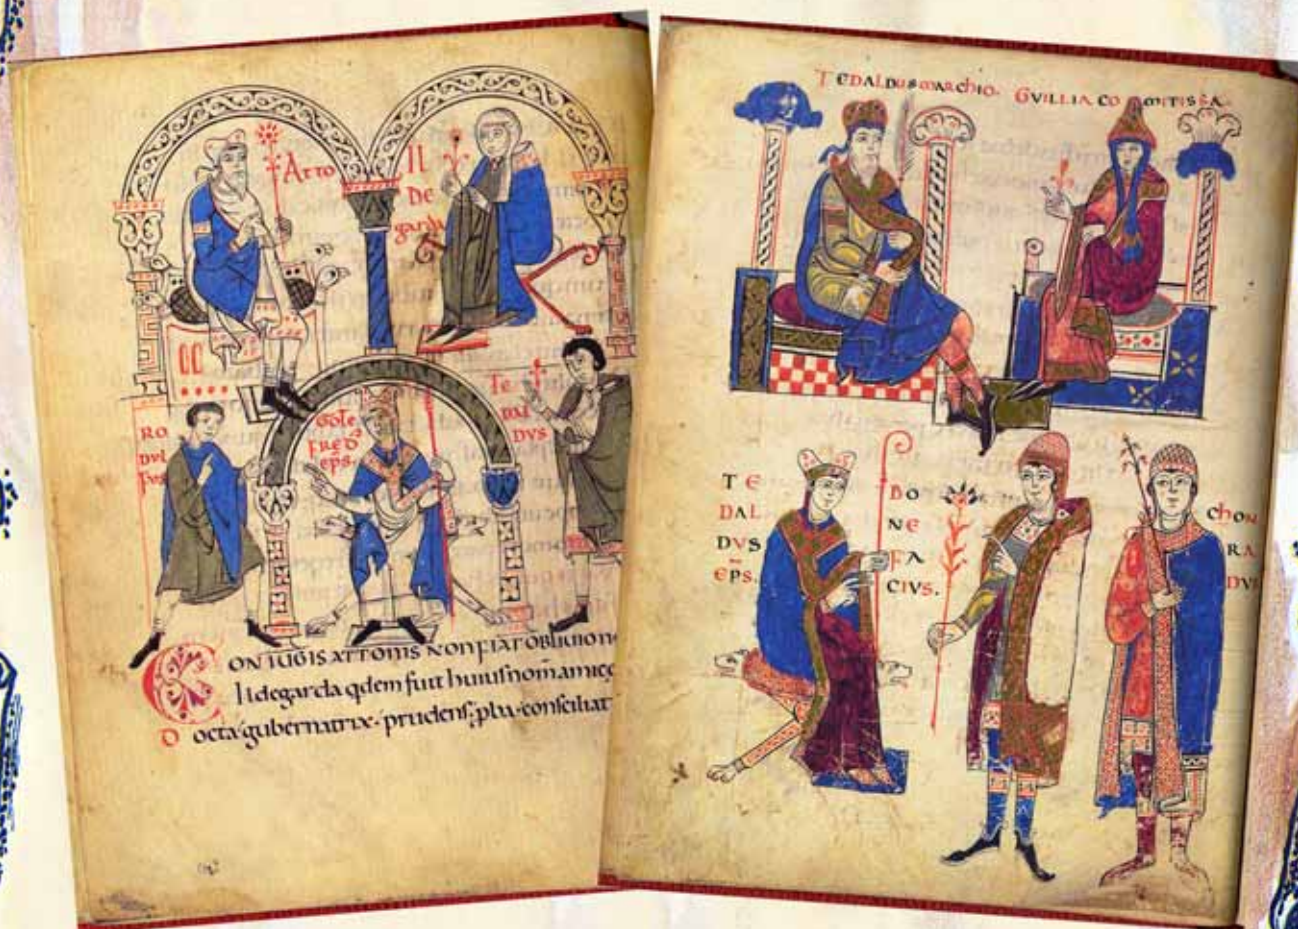 Atto
Il
De
garda
RO
DVL
FVS
Gote
FRED'
eps.
Te
DAL
DVS
CONIUGIS ATTONIS NON FIAT OBLIVIO N
Ildegarda qdem fuit huius nom amice
Docta gubernatrix prudens, pba, consiliat
TEDALDUS MARCHIO. GVILLIA COMITISSA.
TE
DAL
DVS
EPS.
BO
NE
FA
CIVS.
Chon
RA
DVS